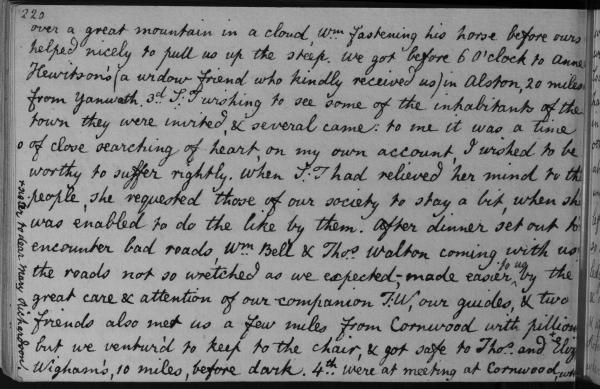 220
over a great mountain in a cloud, Wm fastening his horse before ours
helped nicely to pull us up the steep. We got before 6 O'clock to Anne
Hewitson's (a widow friend who kindly received us) in Alston, 20 miles
from Yanwath. 3d S.T wishing to see some of the inhabitants of the
town they were invited, & several came: to me it was a time
o of close searching of heart, on my own account, I wished to be
worthy to suffer rightly. When S.T had relieved her mind to the
people, she requested those of our society to stay a bit, when she
was enabled to do the like by them. After dinner set out to
encounter bad roads, Wm Bell & Thos Walton coming with us
the roads not so wretched as we expected, made easier to us by the
great care & attention of our companion T.W, our guides, & two
friends also met us a few miles from Cornwood with pillion
but we ventur'd to keep to the chair, & got safe to Thos and Eliz
Wigham's, 10 miles, before dark. 4th were at meeting at Cornwood,
x sister to dear Mary Richardson.